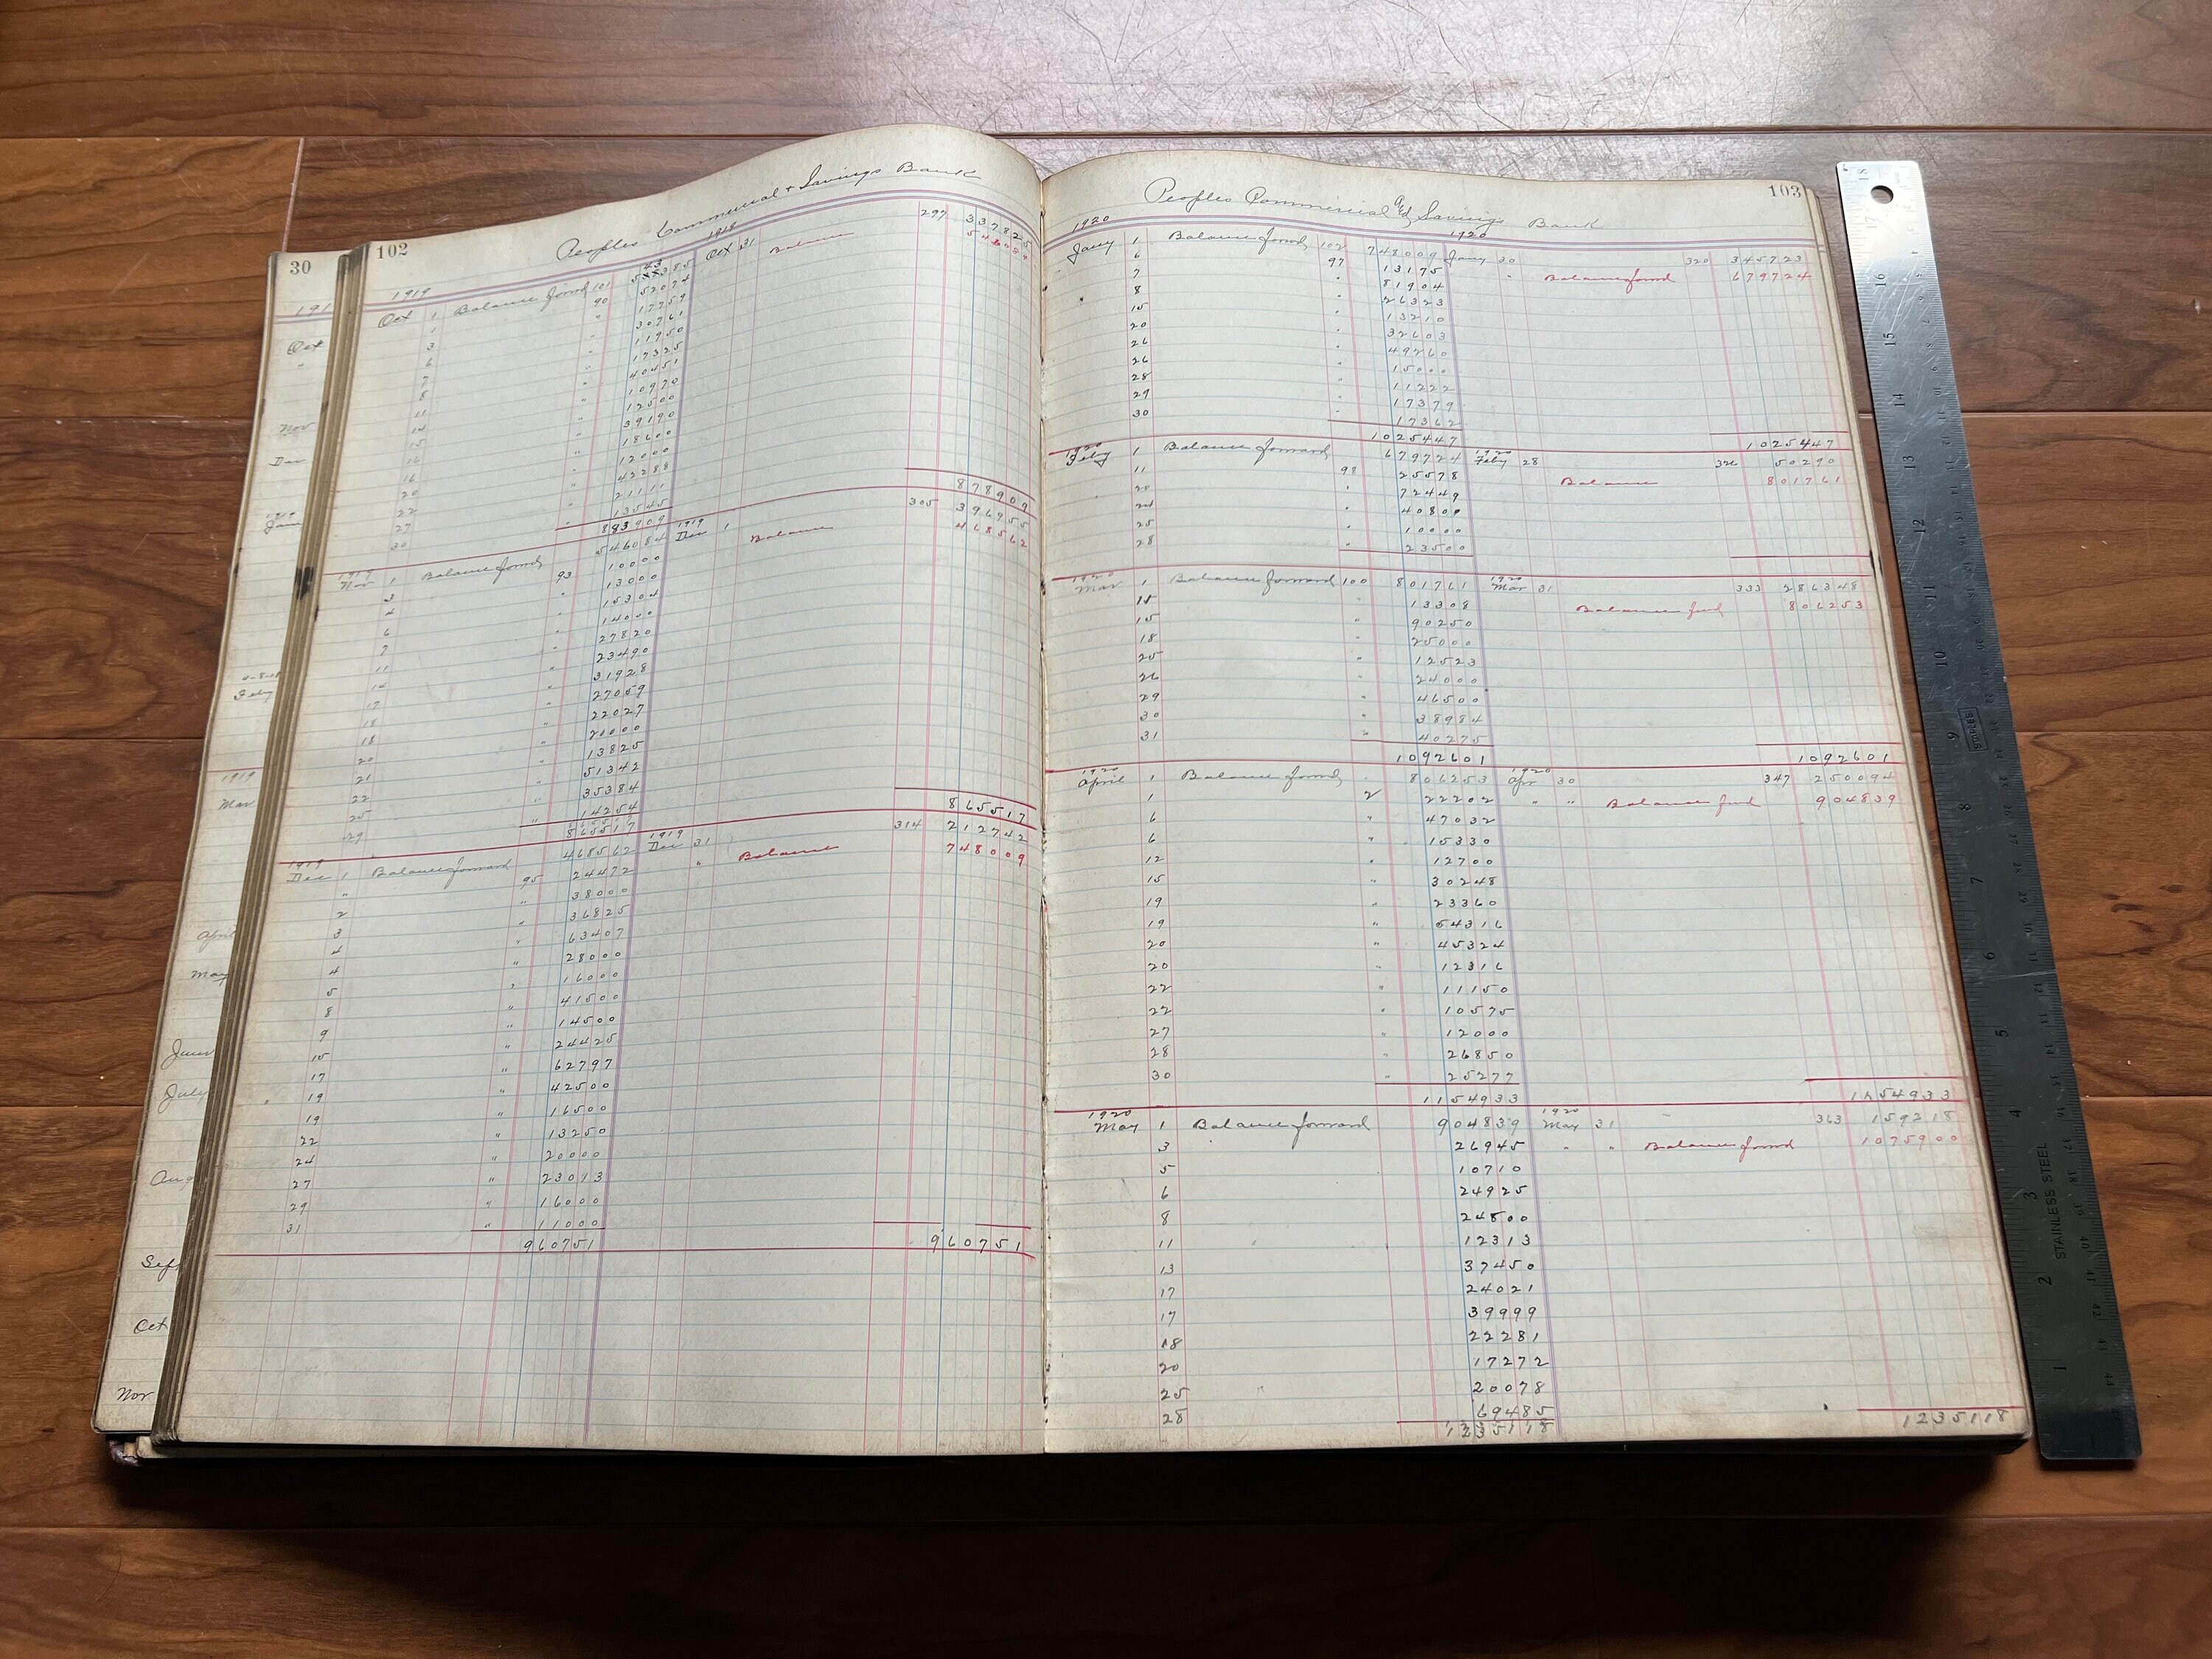 30
191
Oct
Nov
Dec
1919
Jan
Feby
1919
Mar
April
May
June
July
Aug
Sep
Oct
Nov
102
Peoples Commercial & Savings Bank
1919 1919
Oct 1 Balance forwd 101 Oct 31 Balance 297 337825
90 52074
17759
30761
11950
17325
40451
10970
12500
39190
18600
12000
42288
21111
13545
883909 878909
1919
Nov 1 Balance forwd 546084 1919 Dec 1 Balance 305 396955
93 10000 468562
13000
15304
14000
27820
23490
31928
27059
22027
21000
13825
51342
35384
14254
865517 865517
1919
Dec 1 Balance forward 468562 1919 Dec 31 314 212742
" 95 24472 " Balance 748009
2 38000
3 36825
4 63407
4 28000
5 16000
8 41500
9 14500
15 24425
17 62797
19 42500
19 16500
22 13250
24 20000
27 23013
29 16000
31 11000
960751 960751
103
Peoples Commercial and Savings Bank
1920 1920
Jany 1 Balance forwd 102 748009 Jany 30 320 345723
6 97 13175 " Balance forwd 679724
7 " 81904
8 " 26323
15 " 13210
20 " 32603
26 " 49260
26 " 15000
28 " 11222
29 " 17379
30 " 17362
1025447 1025447
1920
Feby 1 Balance forward 679724 1920 Feby 28 326 50290
11 98 25578 Balance 801761
20 " 72449
24 " 40800
25 " 10000
28 " 23500
1920
Mar 1 Balance forward 100 801761 1920 Mar 31 333 286348
11 " 13308 Balance fwd 806253
15 " 90250
18 " 25000
25 " 12523
26 " 24000
29 " 46500
30 " 38984
31 " 40275
1092601 1092601
1920
April 1 Balance forwd 806253 1920 Apr 30 347 250094
1 2 22202 " " Balance fwd 904839
6 " 47032
6 " 15330
12 " 12700
15 " 30248
19 " 23360
19 " 54316
20 " 45324
20 " 12316
22 " 11150
22 " 10575
27 " 12000
28 " 26850
30 " 25277
1154933 1154933
1920
May 1 Balance forward 904839 1920 May 31 363 159218
3 26945 " " Balance forwd 1075900
5 10710
6 24925
8 24800
11 12313
13 37450
17 24021
17 39999
18 22281
20 17272
25 20078
28 69485
1235118 1235118
18 17 16 15 14 13 12 11 10 9 8 7 6 5 4 3 2 1
STAPLES
STAINLESS STEEL